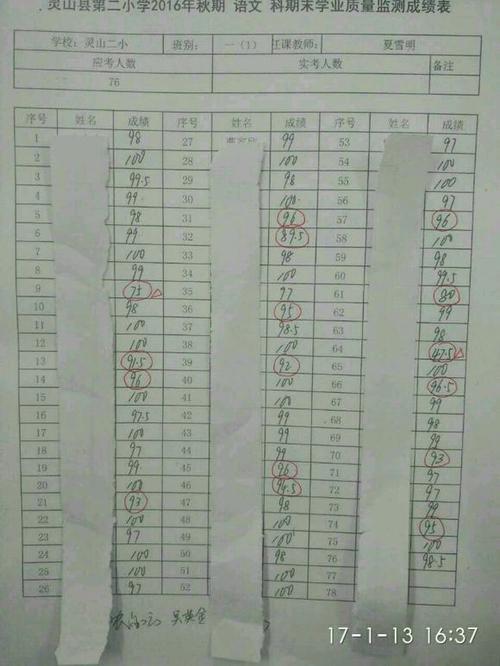 灵山县第二小学2016年秋期 语文 科期末学业质量监测成绩表
学校：灵山二小 班别： 一（1） 任课教师： 夏雪明
应考人数 实考人数 备注
76
序号 姓名 成绩 序号 姓名 成绩 序号 姓名 成绩
1 98 27 99 53 97
2 100 28 100 54 100
3 99.5 29 98 55 100
4 99 30 100 56 97
5 98 31 96 57 96
6 99 32 89.5 58 100
7 100 33 98 59 98
8 99 34 99 60 99.5
9 75 35 97 61 80
10 98 36 95 62 99
11 100 37 98.5 63 98
12 100 38 100 64 47.5
13 91.5 39 92 65 100
14 96 40 100 66 96.5
15 100 41 100 67 99
16 97.5 42 99 68 98
17 100 43 99 69 99
18 97 44 99 70 93
19 99 45 96 71 97
20 100 46 94.5 72 97
21 93 47 98 73 98
22 100 48 100 74 95
23 97 49 100 75 100
24 100 50 98 76 98.5
25 100 51 100 77
26 97 52 100 78
17-1-13 16:37